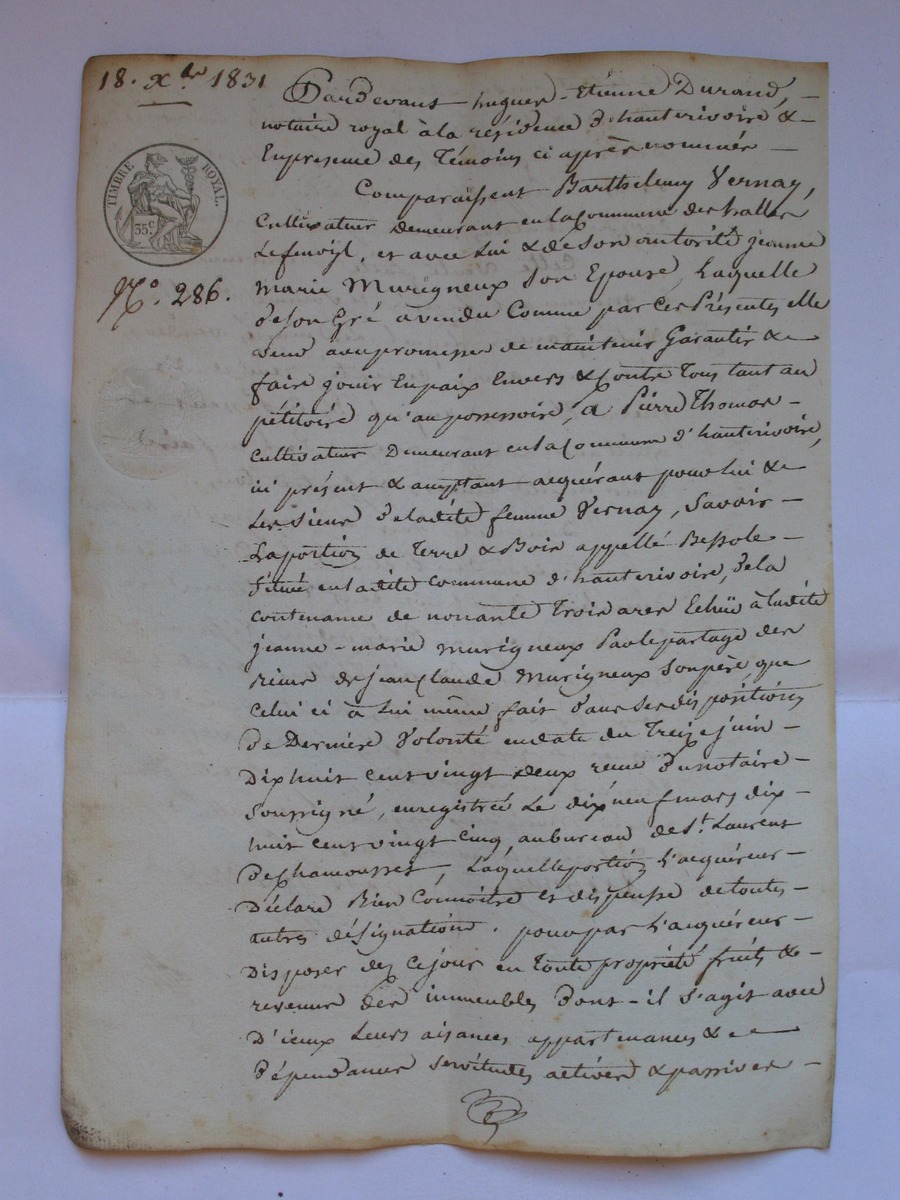 18. Xbre 1831
TIMBRE ROYAL.
35 c.
No. 286.
Pardevant hugues-Etienne Durand,
notaire royal à la résidence d'hauterivoire &
En presence des Témoins ci après nommés
Comparaissent Barthelemy Vernay,
Cultivateur demeurant en la Commune des halles
Lefenoyl, et avec Lui & de Son autorité jeanne
marie Murigneux Son Epouse, Laquelle
de son Gré a vendu Comme par Ces Présentes elle
vend avec promesses de maintenir Garantir &
faire jouir En paix Envers & Contre Tous tant au
pétitoire qu'au possessoire, a Pierre Thomas
Cultivateur Demeurant en la Commune d'hauterivoire,
ici présent & acceptant acquérant pour Lui &
Les Sieurs de ladite femme Vernay, Savoir
La portion de Terre & Bois appellé Bessole
Située en ladite commune d'hauterivoire, de la
contenance de nonante Trois ares Echüe à ladite
jeanne-marie Murigneux Par le partage des
biens de jean Claude Murigneux Son père, que
Celui ci à Lui même fait dans Ses dispositions
de Dernière Volonté en date du Treize juin
Dix huit cent vingt deux reçue du notaire
Soussigné, enregistrée Le dix neuf mars dix
huit cent vingt Cinq, au bureau de St. Laurent
de Chamousset, Laquelle portion L'acquéreur
Déclare Bien Connoitre et dispense de toutes
autres désignations. pour par L'acquéreur
Disposer dez Ce jour en Toute propriété fruits &
revenus des immeubles Dont-il S'agit avec
D'iceux Leurs aisances appartenances &
Dépendances Servitudes actives & passives